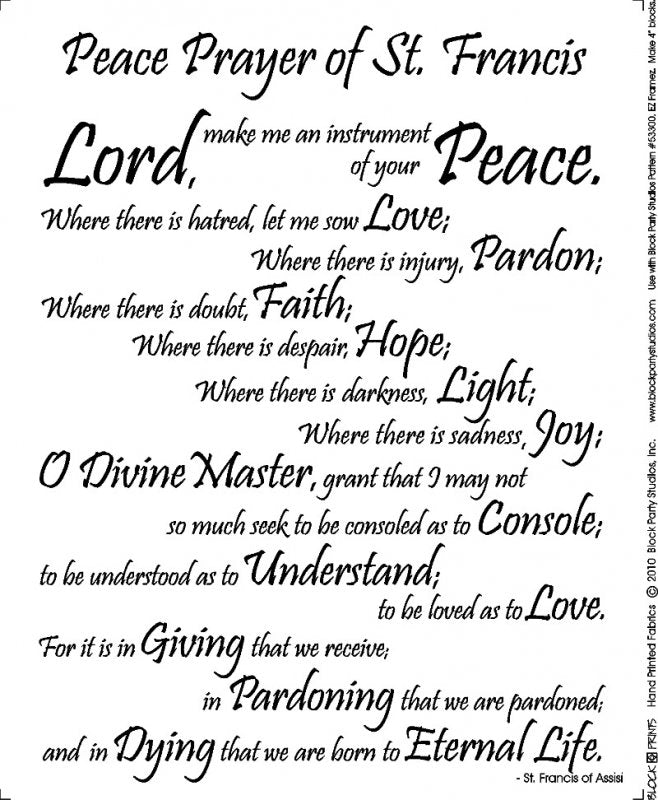 Peace Prayer of St. Francis
Lord, make me an instrument
of your Peace.
Where there is hatred, let me sow Love;
Where there is injury, Pardon;
Where there is doubt, Faith;
Where there is despair, Hope;
Where there is darkness, Light;
Where there is sadness, Joy;
O Divine Master, grant that I may not
so much seek to be consoled as to Console;
to be understood as to Understand;
to be loved as to Love.
For it is in Giving that we receive;
in Pardoning that we are pardoned;
and in Dying that we are born to Eternal Life.
- St. Francis of Assisi
BLOCK PRINTS Hand Printed Fabrics © 2010 Block Party Studios, Inc. www.blockpartystudios.com Use with Block Party Studios Pattern #53300, EZ Framez. Make 4" blocks.